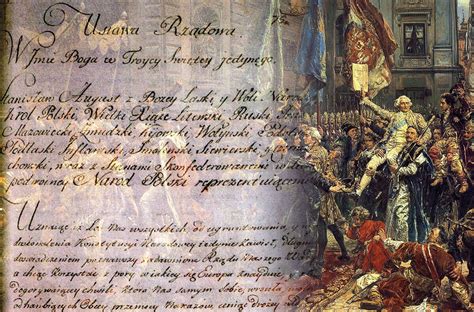 Ustawa Rządowa.
W Imie Boga w Troycy Swiętey jedynego.
Stanisław August z Bozey Laski y Woli
Krol Polski, Wielki Xiąze Litewski, Ruski,
Mazowiecki, Zmudzki, Kijowski, Wołynski,
Podlaski, Smolenski, Siewierski,
chowski, wraz z Stanami Skonfederowanemi
podwoyney Narod Polski reprezentuiącemi
Uznaiąc iz Los Nas wszystkich od ugruntowania y
doskonalenia Konstytucyi Narodowey iedynie zawisł, długim
doswiadczeniem poznawszy zadawnione Rządu Naszego
a chcąc korzystac z pory w iakiey się Europa znayduie, y
dogorywaiącey chwili, ktora Nas samym Sobie wrociła,
hanbiących Obcey przemocy Nakazow, ceniąc drozey